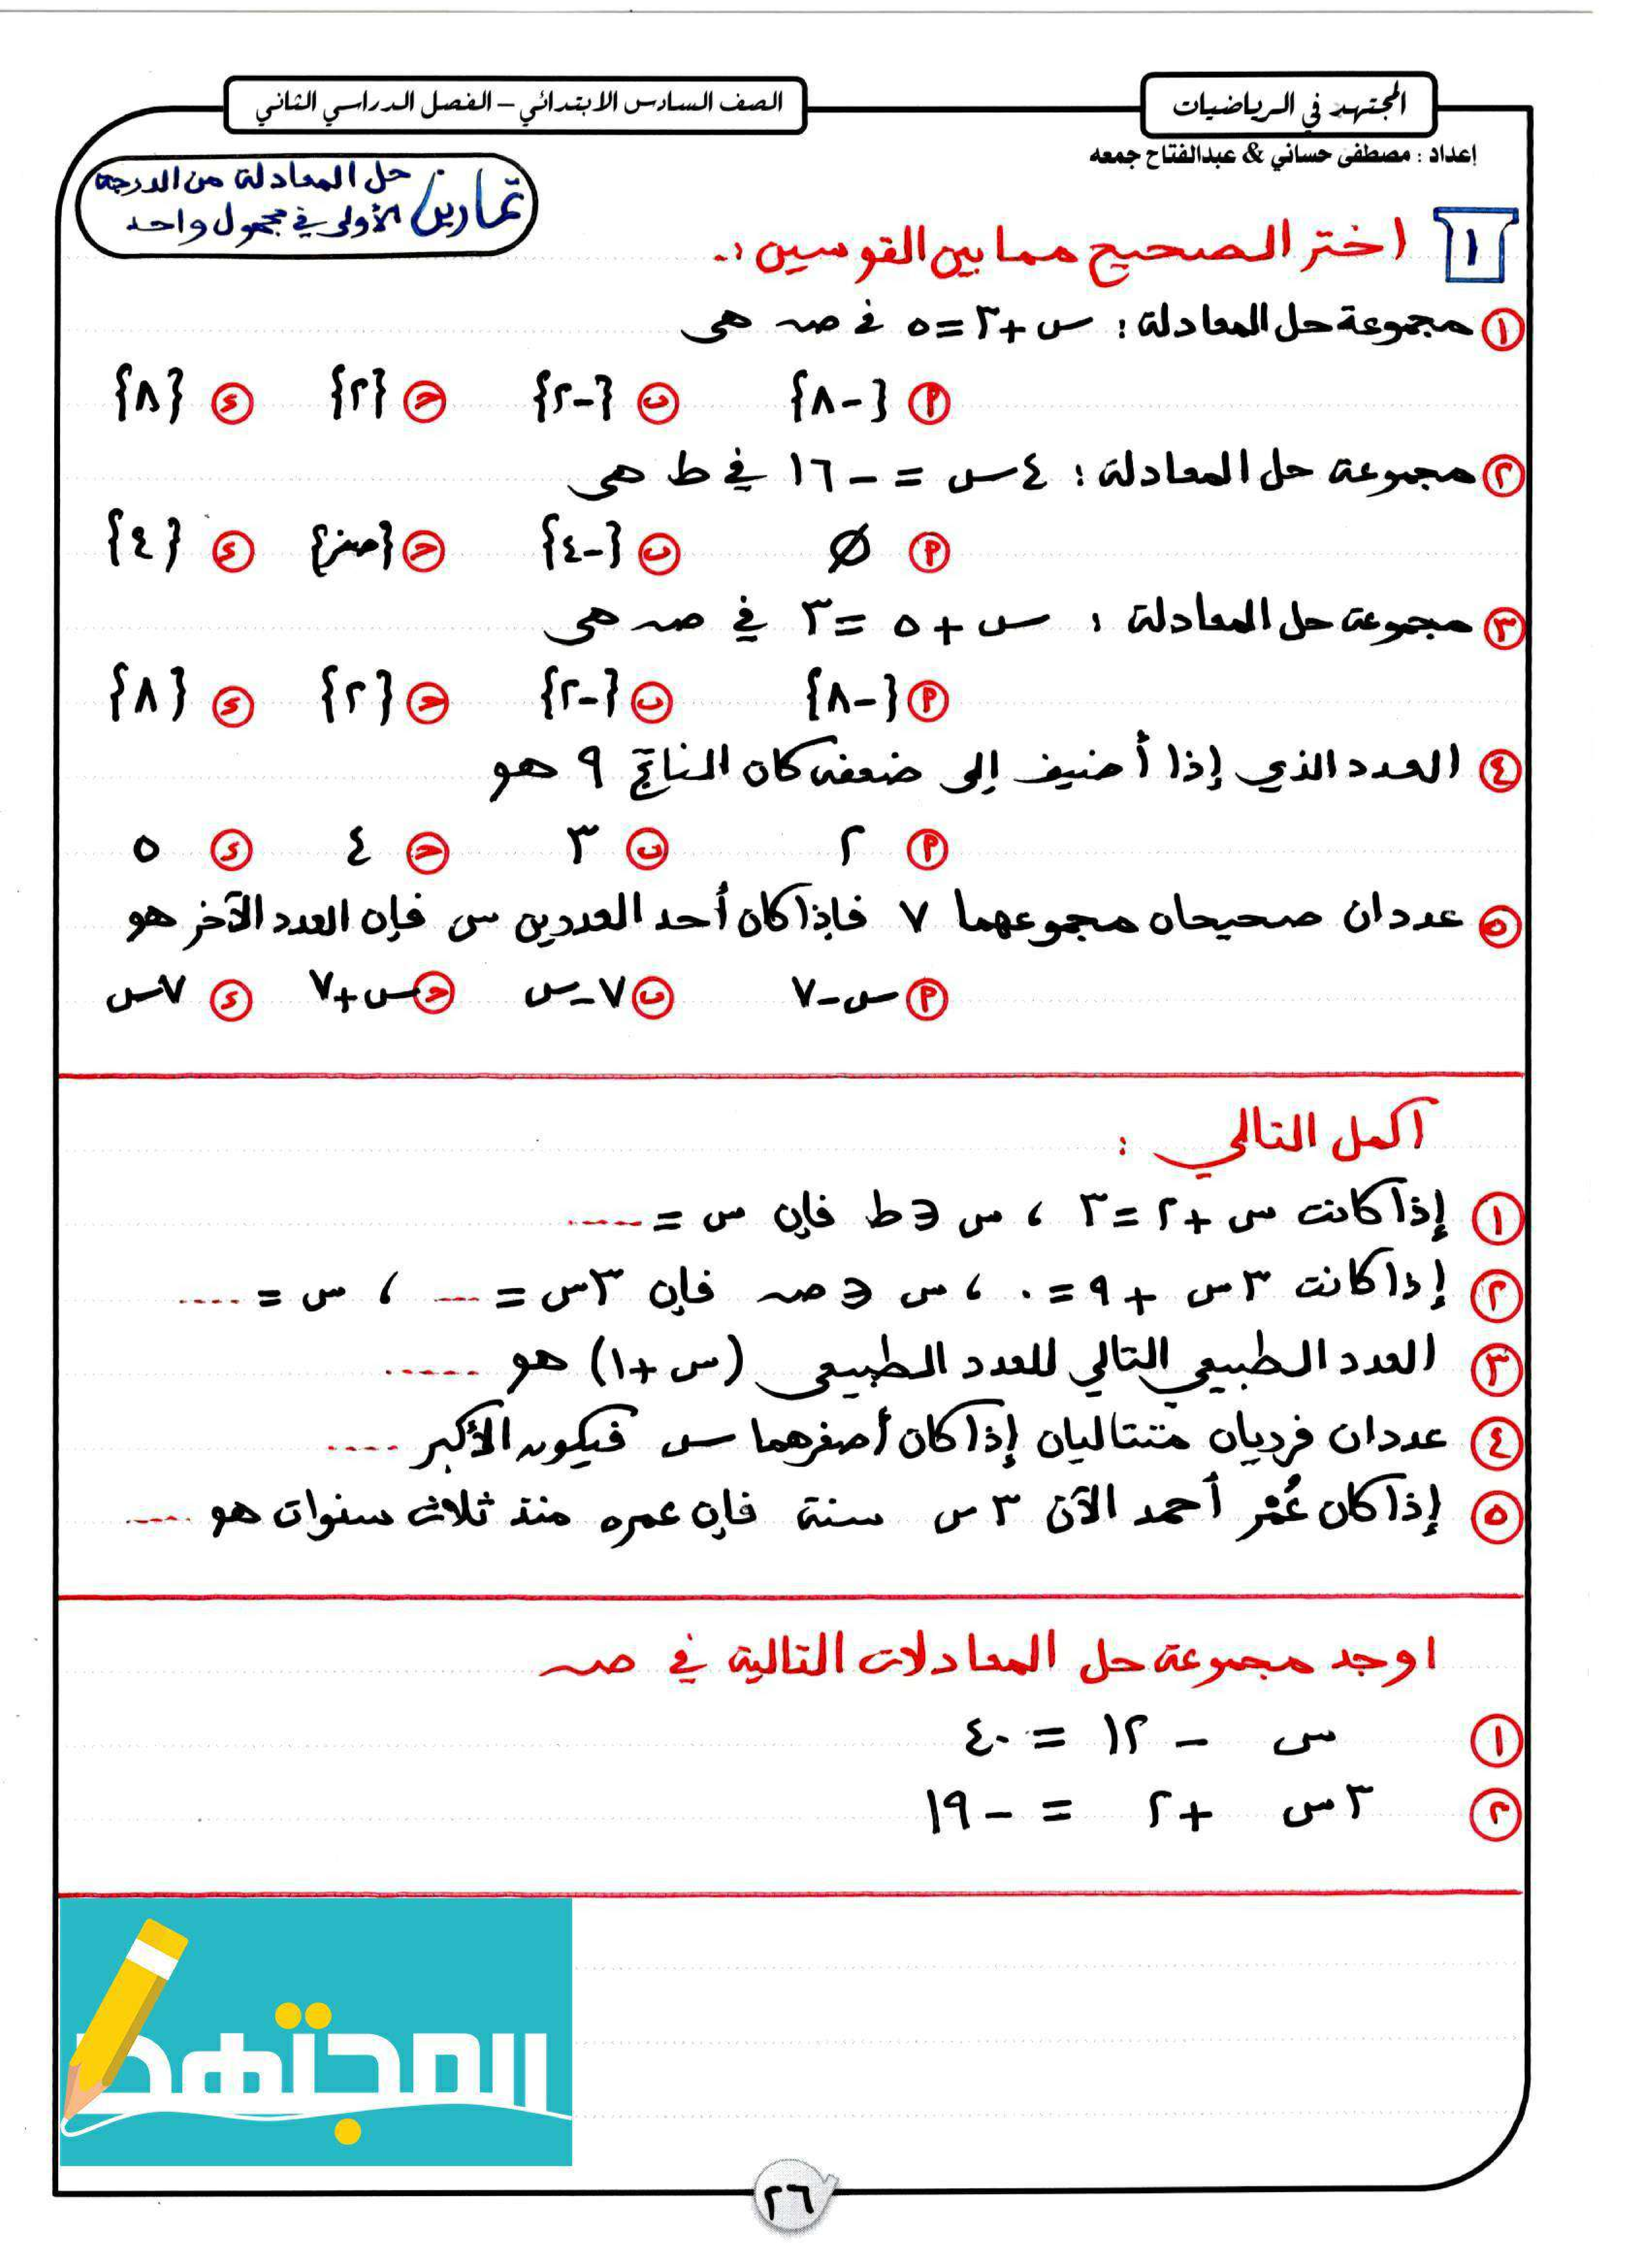 المجتهد في الرياضيات
الصف السادس الابتدائي – الفصل الدراسي الثاني
إعداد : مصطفى حساني & عبدالفتاح جمعه
تمارين حل المعادلة من الدرجة
الأولى في مجهول واحد
١ اختر الصحيح مما بين القوسين :-
١ مجموعة حل المعادلة : س + ٣ = ٥ في صـ هى
أ {-٨} ب {-٢} ج {٢} د {٨}
٢ مجموعة حل المعادلة : ٤س = -١٦ في ط هى
أ ∅ ب {-٤} ج {صفر} د {٤}
٣ مجموعة حل المعادلة : س + ٥ = ٣ في صـ هى
أ {-٨} ب {-٢} ج {٢} د {٨}
٤ العدد الذي إذا أضيف إلى ضعفه كان الناتج ٩ هو
أ ٢ ب ٣ ج ٤ د ٥
٥ عددان صحيحان مجموعهما ٧ فإذا كان أحد العددين س فإن العدد الآخر هو
أ س-٧ ب ٧-س ج س+٧ د ٧س
أكمل التالي :
١ إذا كانت س + ٢ = ٣ ، س ∈ ط فإن س = .....
٢ إذا كانت ٣س + ٩ = ٠ ، س ∈ صـ فإن ٣س = ... ، س = ....
٣ العدد الطبيعي التالي للعدد الطبيعي (س + ١) هو .....
٤ عددان فرديان متتاليان إذا كان أصغرهما س فيكون الأكبر ....
٥ إذا كان عُمْر أحمد الآن ٣س سنة فإن عمره منذ ثلاث سنوات هو ....
اوجد مجموعة حل المعادلات التالية في صـ
١ س - ١٢ = ٤٠
٢ ٣س + ٢ = -١٩
المجتهد
٢٦